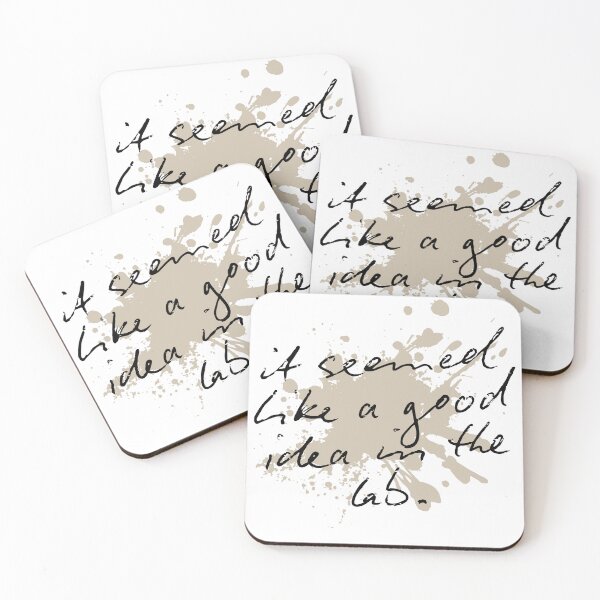 it seemed
like a good
it seemed
like a good
idea in the
it seemed
like a good
idea in the
lab
it seemed
like a good
idea in the
lab.